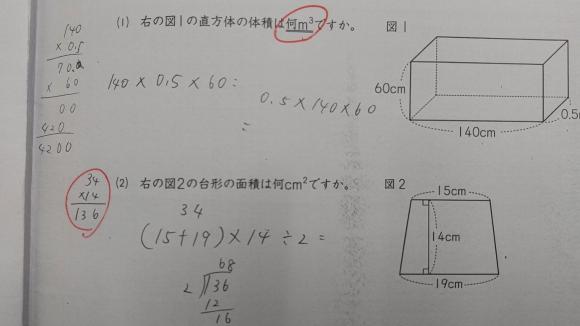 (1) 右の図1の直方体の体積は何m³ですか。
図1
140
× 0.5
70.0
× 60
00
420
4200
140 × 0.5 × 60 =
0.5 × 140 × 60
=
60cm
140cm
0.5
(2) 右の図2の台形の面積は何cm²ですか。
図2
34
×14
136
34
(15+19) × 14 ÷ 2 =
68
2 136
12
16
15cm
14cm
19cm